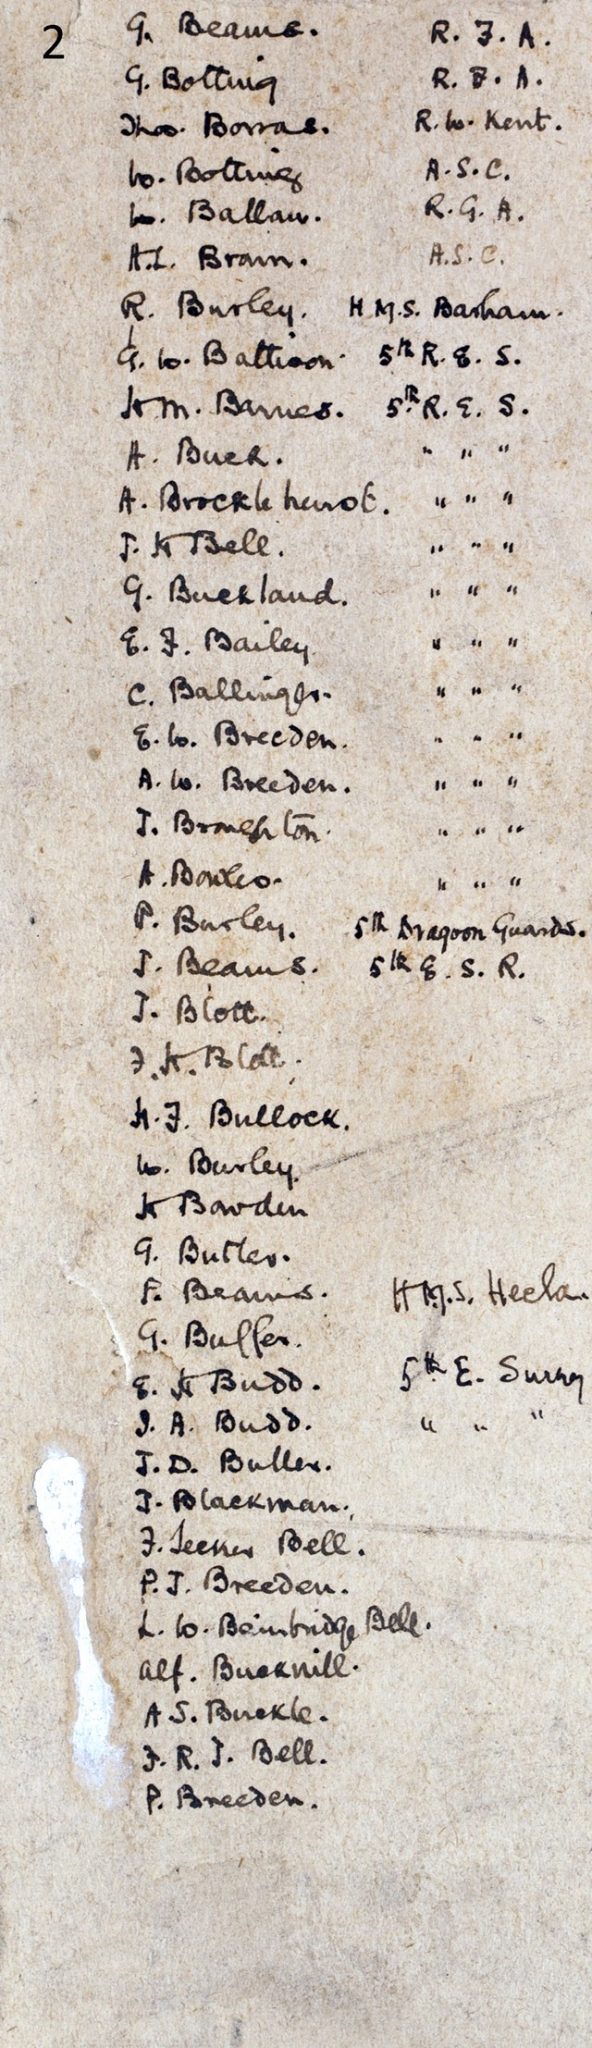 2
G. Beams. R. F. A.
G. Botting R. F. A.
Thos. Borras. R. W. Kent.
W. Botting A. S. C.
W. Ballan. R. G. A.
A.L. Brain. A. S. C.
R. Burley. H M.S. Barham.
G. W. Battison. 5th R. E. S.
H M. Barnes. 5th R. E. S.
A. Buck. " " "
A. Brocklehurst. " " "
J. H Bell. " " "
G. Buckland. " " "
E. F. Bailey " " "
C. Ballinger. " " "
E. W. Breeden. " " "
A. W. Breeden. " " "
J. Broughton. " " "
A. Bowles. " " "
P. Burley. 5th Dragoon Guards.
J. Beams. 5th E. S. R.
J. Blott.
F. H. Blott.
H. F. Bullock.
W. Burley.
H Bowden
G. Butler.
F. Beams. H M.S. Hecla.
G. Buffer.
E. H Budd. 5th E. Surrey
J. A. Budd. " " "
J. D. Buller.
J. Blackman.
F. Bell.
P. J. Breeden.
L. W. Bainbridge Bell.
Alf. Bucknill.
A. S. Buckle.
F. R. J. Bell.
P. Breeden.